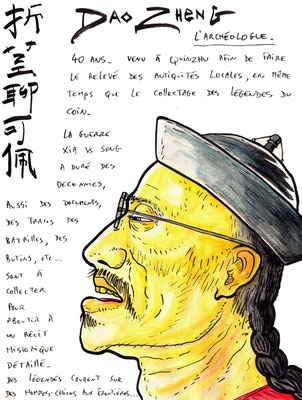 折荃聊可佩
DAO ZHENG
L'ARCHÉOLOGUE_
40 ANS_ VENU À QWINZHU AFIN DE FAIRE
LE RELEVÉ DES ANTIQUITÉS LOCALES, EN MÊME
TEMPS QUE LE COLLECTAGE DES LÉGENDES DU
COIN_
LA GUERRE
XIA VS SONG
A DURÉ DES
DECENNIES,
AUSSI DES DOCUMENTS,
DES TRACES DES
BATAILLES, DES
BUTINS, ETC...
SONT À
COLLECTER
POUR
ABOUTIR À
UN RÉCIT
HISTORIQUE
DÉTAILLÉ_
DES LÉGENDES COURENT SUR
DES HOMMES-CHIENS AUX FRONTIÈRES...